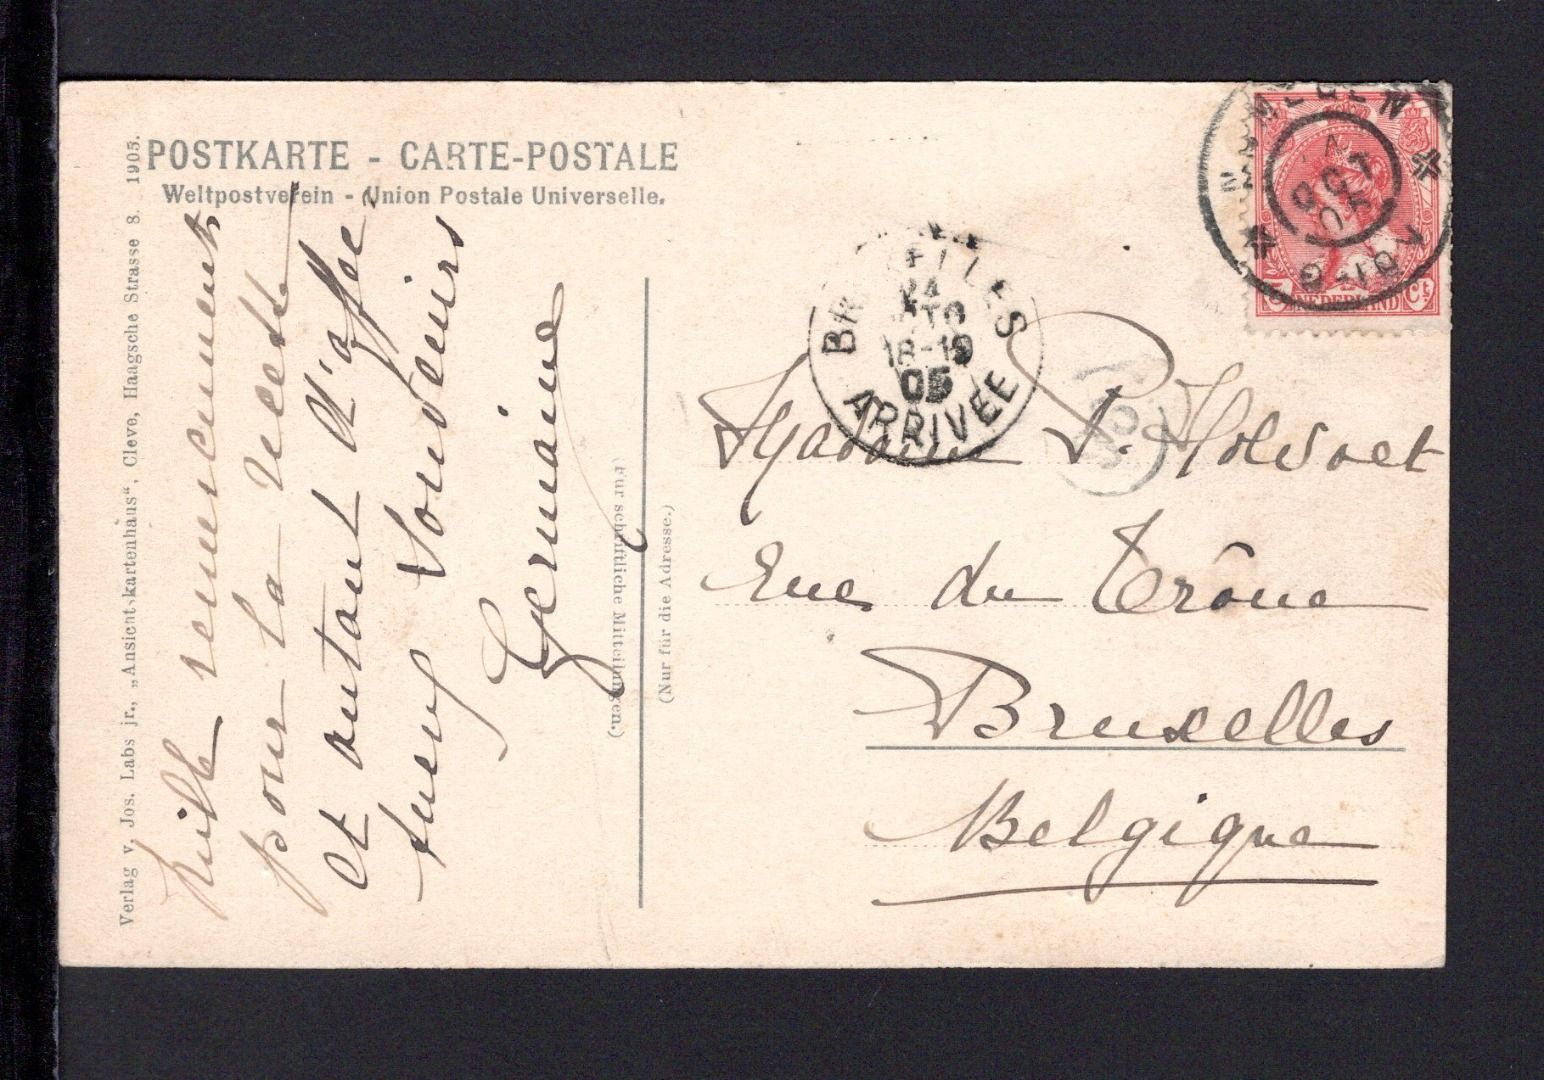 POSTKARTE - CARTE-POSTALE
Weltpostverein - Union Postale Universelle.
Verlag v. Jos. Labs jr., „Ansichtskartenhaus“, Cleve, Haagsche Strasse 8. 1905.
Mille remerciements
pour la recette
et autant d'affec
tueux souvenirs
Germaine
(Für schriftliche Mitteilungen.)
(Nur für die Adresse.)
NIJMEGEN
OCT
05
9-10 V
5 NEDERLAND Ct
BRUXELLES
24
OCTO
18-19
05
ARRIVÉE
Madame P. Holvoet
Rue du Trône
Bruxelles
Belgique